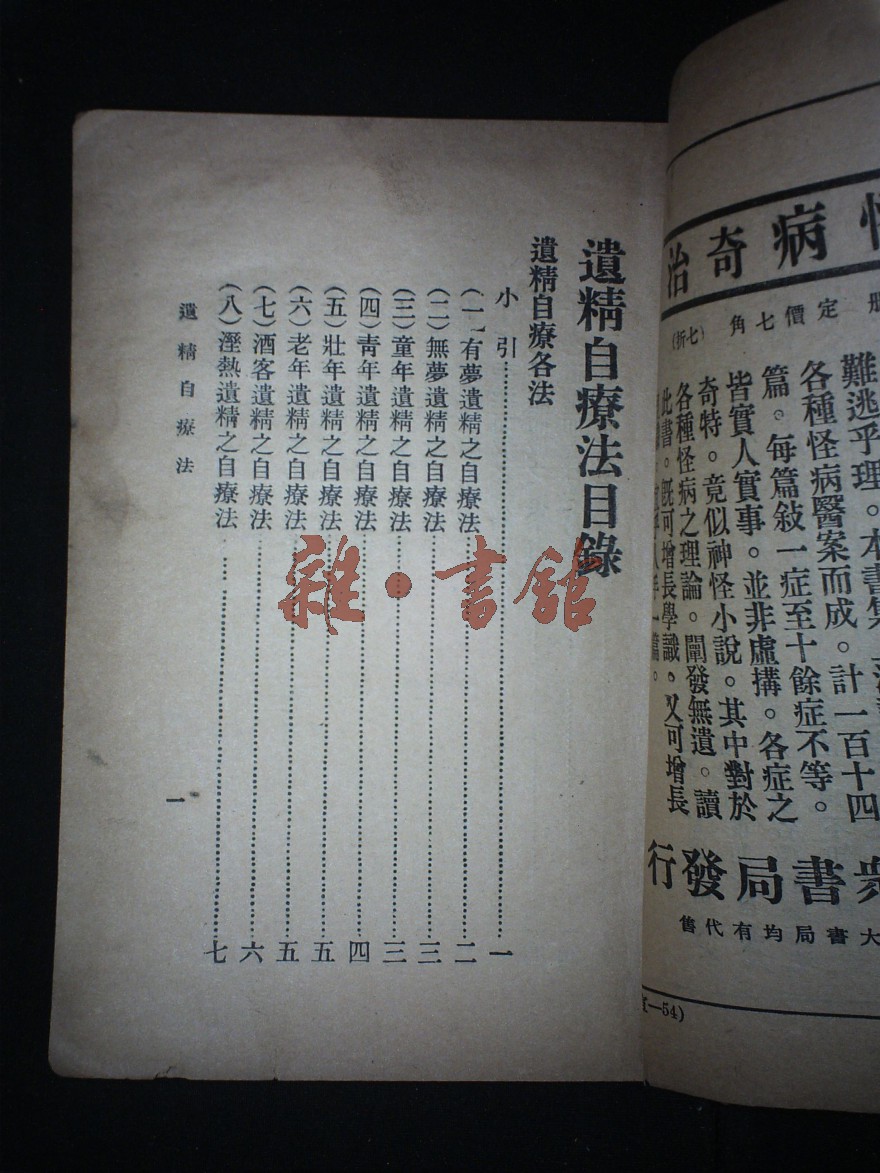 病奇治
定價七角(七折)
難逃乎理。本書集
各種怪病醫案而成。計一百十四
篇。每篇敍一症至十餘症不等。
皆實人實事。並非虛搆。各症之
奇特。竟似神怪小說。其中對於
各種怪病之理論。闡發無遺。讀
此書。旣可增長學識。又可增長
手一篇。
書局發行
大書局均有代售
—54)
遺精自療法目錄
遺精自療各法
小引……一
(一)有夢遺精之自療法……二
(二)無夢遺精之自療法……三
(三)童年遺精之自療法……三
(四)靑年遺精之自療法……四
(五)壯年遺精之自療法……五
(六)老年遺精之自療法……五
(七)酒客遺精之自療法……六
(八)溼熱遺精之自療法……七
遺精自療法
一
雜·書館